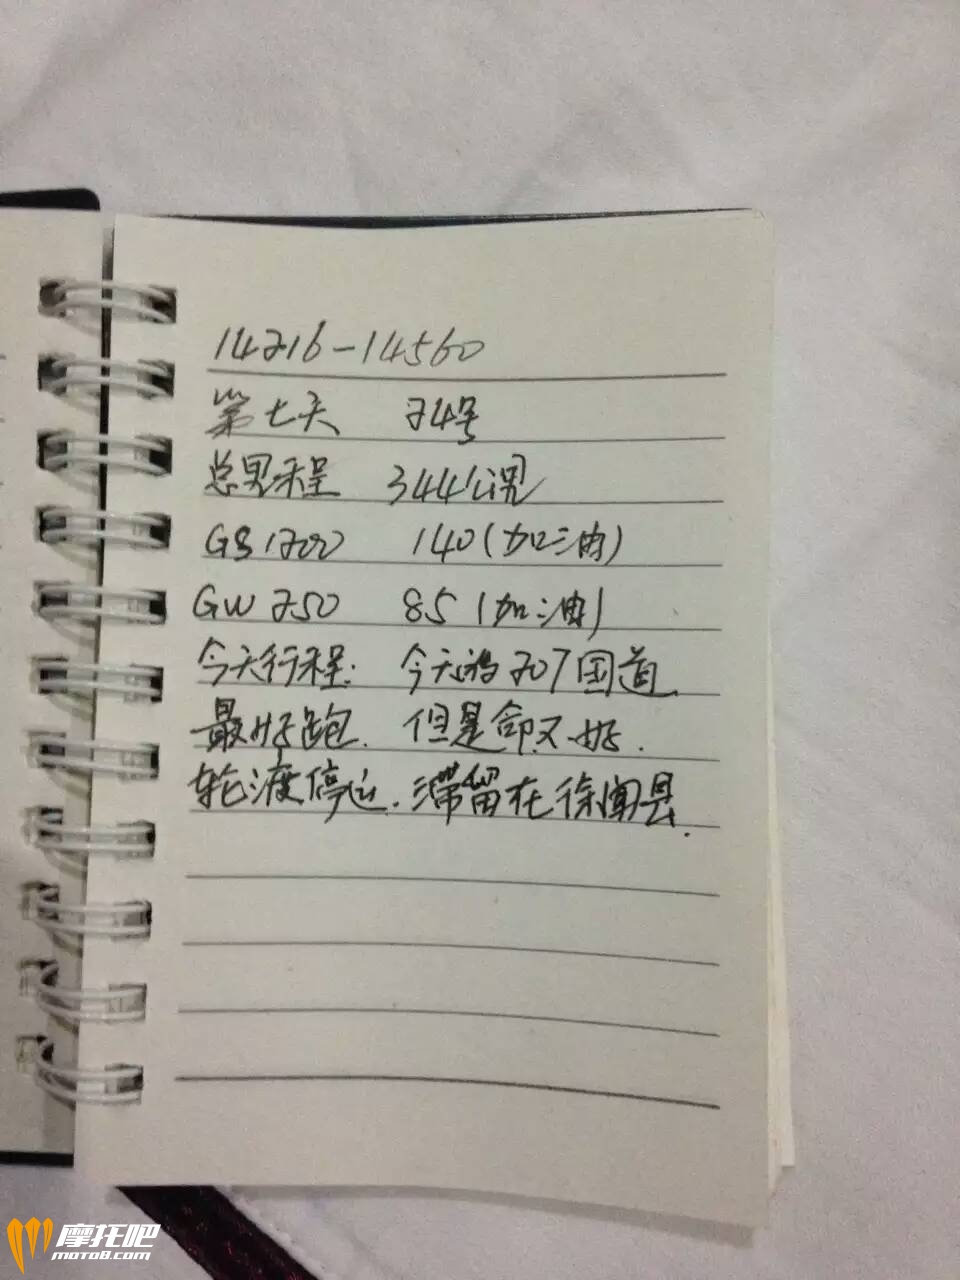 14216-14560
第七天 24号
总里程 344公里
GS1200 140(加油)
GW250 85(加油)
今天行程. 今天的207国道
最好跑. 但是命不好.
轮渡停运. 滞留在徐闻县.
摩托吧
moto8.com